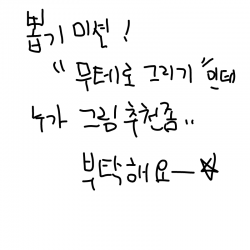 뽑기 미션!
"무테로 그리기"인데
누가 그림 추천좀..
부탁해요ㅡ☆